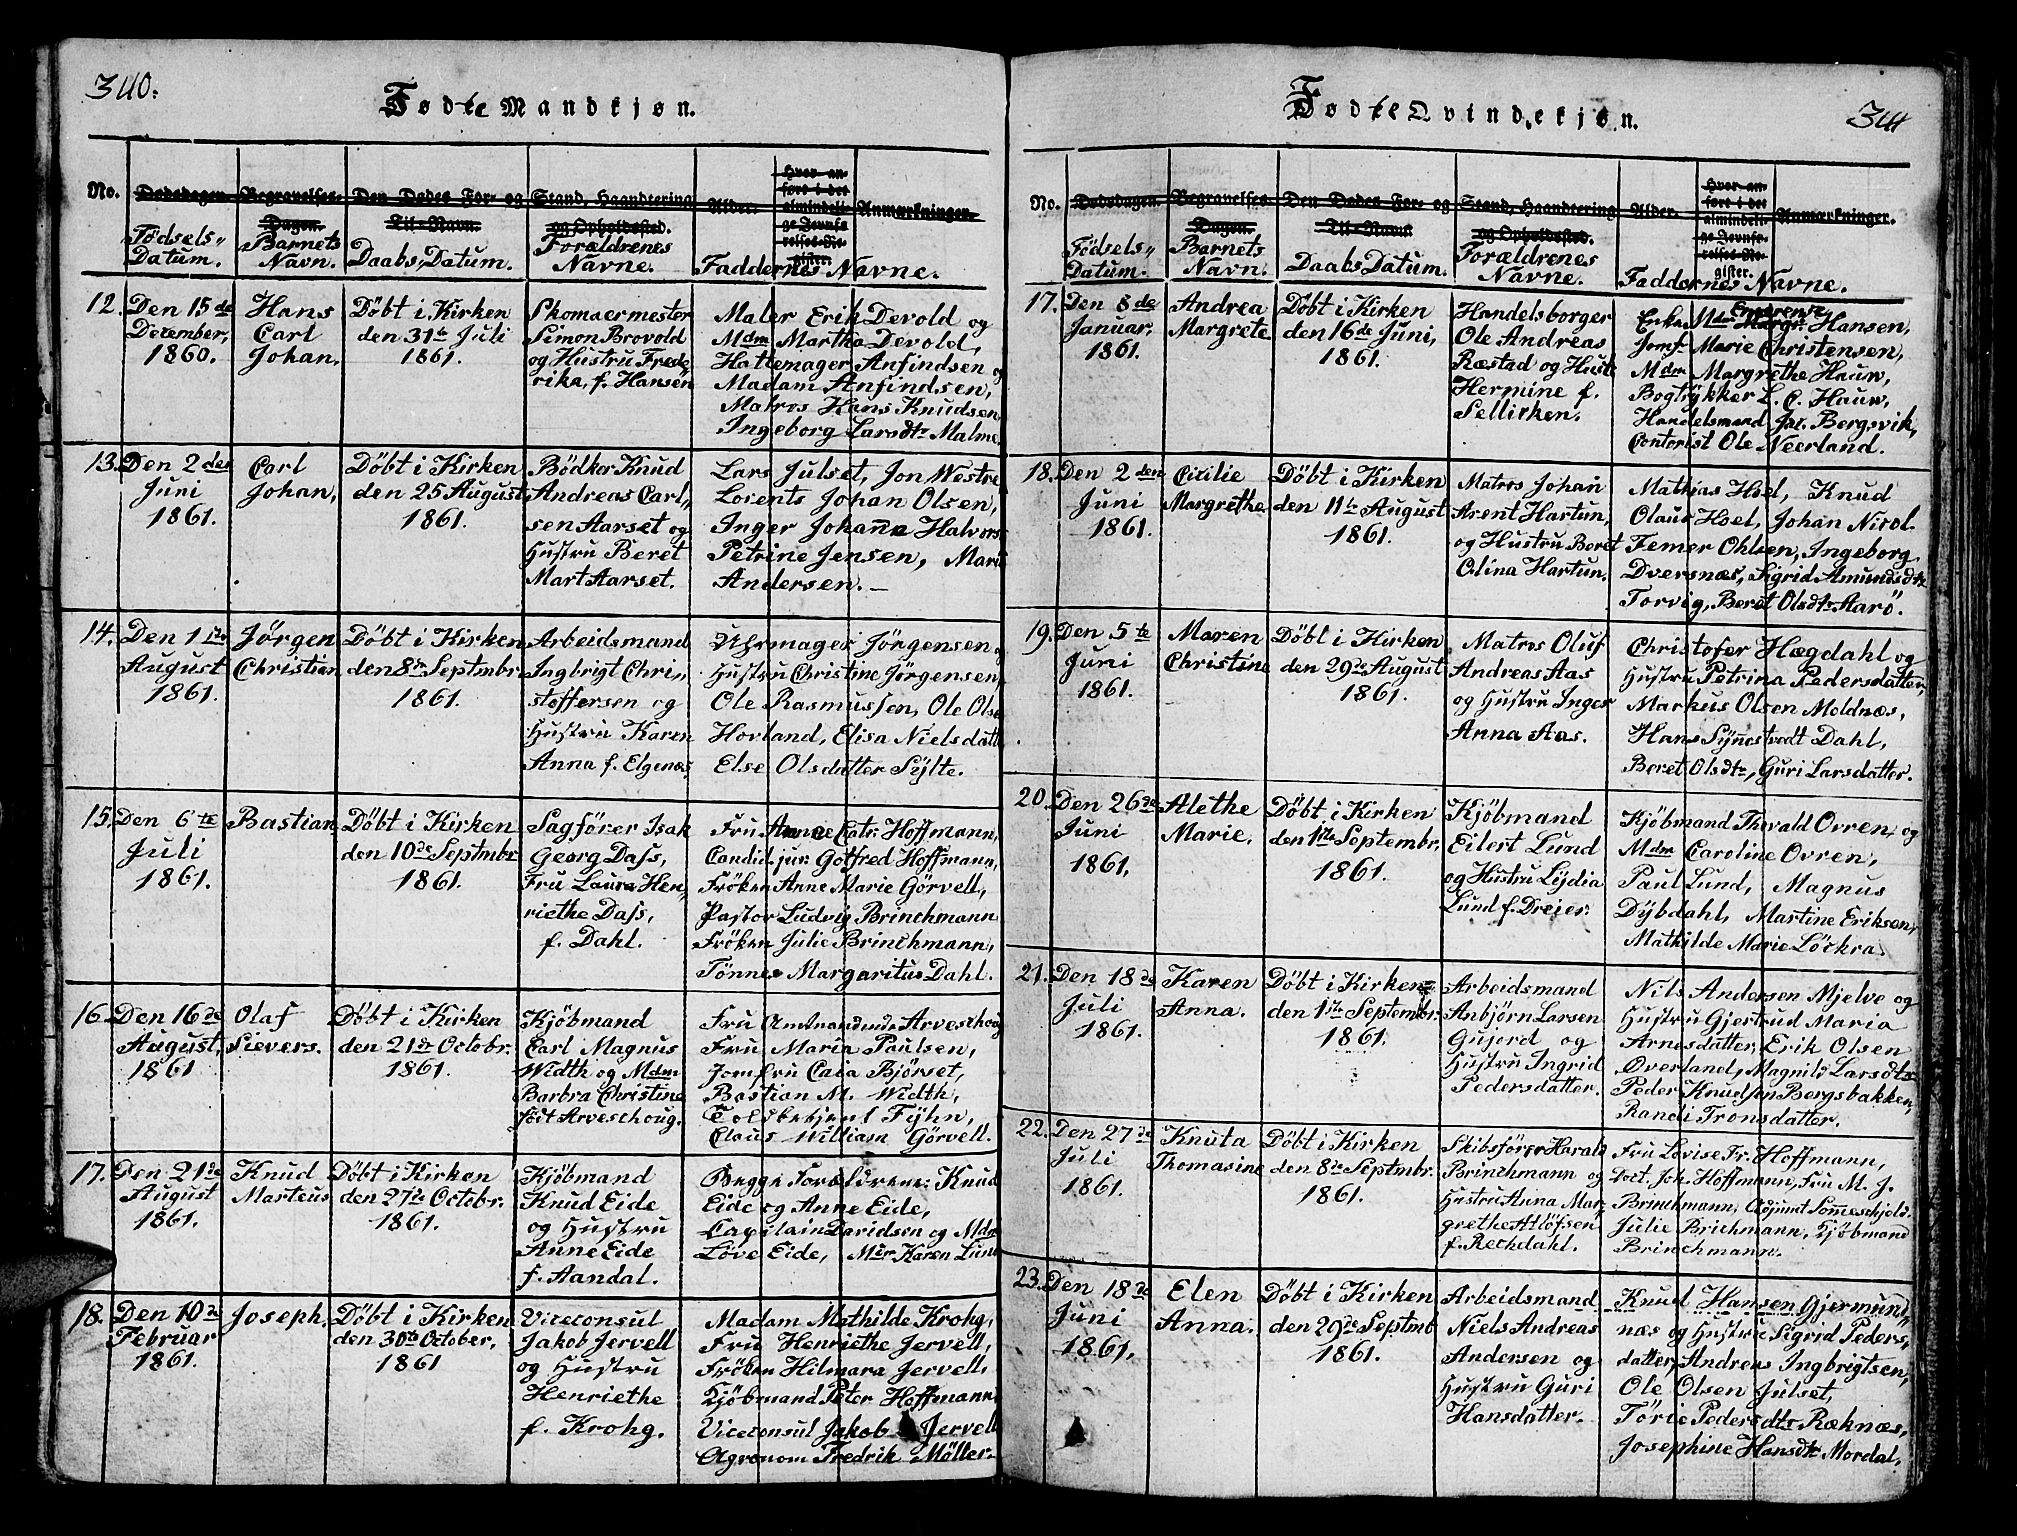 340.
Fødte Mandkjøn.
No.
Dødsdagen. Begravelses-Dagen. Den Dødes For- og Til-Navn. Stand, Haandtering og Opholdssted. Alder. Hvor anført i det almindelige Jevnførelses-Register. Anmærkninger.
Fødsels-Datum. Barnets Navn. Daabs-Datum. Forældrenes Navne. Faddernes Navne.
12. Den 15de December, 1860.
Hans Carl Johan.
Döbt i Kirken den 31te Juli 1861.
Skomaermester
Simon Brovold
og Hustru Frede-
rika, f. Hansen
Maler Erik Devold og
Mdm Martha Devold,
Hattemager Anfindsen og
Madam Anfindsen,
Matros Hans Knudsen,
Ingeborg Larsdtr Malme.
13. Den 2den Juni 1861.
Carl Johan,
Döbt i Kirken den 25 August 1861.
Bödker Knud
Andreas Carl-
sen Aarset og
Hustru Beret
Mart Aarset.
Lars Julset, Jon Westre
Lorents Johan Olsen,
Inger Johanne Halvors
Petrine Jensen, Marie
Andersen.
14. Den 1ste August 1861.
Jörgen Christian
Döbt i Kirken den 8de Septmbr 1861.
Arbeidsmand
Ingbrigt Chri-
stoffersen og
Hustru Karen
Anna f. Elgenæs,
Uhrmager Jörgensen og
Hustru Christine Jörgensen,
Ole Rasmussen, Ole Olse
Hovland, Elisa Nielsdatte
Else Olsdatter Sylte.
15. Den 6te Juli 1861.
Bastian
Döbt i Kirken den 10de Septmbr 1861.
Sagförer Isak
Georg Dass,
Fru Laura Hen-
riethe Dass,
f. Dahl.
Fru Anne Catr. Hoffmann,
Candid. jur. Gotfred Hoffmann,
Fröken Anne Marie Görvell,
Pastor Ludvig Brinchmann
Fröken Julie Brinchmann,
Tönnes Margaritus Dahl.
16. Den 16de August, 1861
Olaf Sievers.
Döbt i Kirken den 21de Octobr. 1861.
Kjöbmand
Carl Magnus
Width og Mdm
Barbra Christine
födt Arveschoug.
Fru Amtmandinde Arveschoug
Fru Maria Paulsen,
Jomfru Cara Björset,
Bastian M. Width,
Toldbetjent Fyhn,
Claus William Görvell.
17. Den 21de August 1861.
Knud Marteus
Döbt i Kirken den 27de Octobr. 1861.
Kjöbmand
Knud Eide
og Hustru
Anne Eide
f. Aandal.
Begge Forældrene: Knud
Eide og Anne Eide,
Capitain Davidsen og Mdm
Löve Eide, Mdm Karen Lund
18. Den 10de Februar 1861.
Joseph,
Döbt i Kirken den 30te October, 1861
Viceconsul
Jakob Jervell
og Hustru
Henriethe
f. Krohg.
Madam Mathilde Krohg,
Fru Henriethe Jervell,
Fröken Hilmara Jervell,
Kjöbmand Peter Hoffmann
Viceconsul Jakob Jervell
Agronom Fredrik Möller.
341
Fødte Qvindekjøn.
No.
Dødsdagen. Begravelses-Dagen. Den Dødes For- og Til-Navn. Stand, Haandtering og Opholdssted. Alder. Hvor anført i det almindelige Jevnførelses-Register. Anmærkninger.
Fødsels-Datum. Barnets Navn. Daabs Datum. Forældrenes Navne. Faddernes Navne.
17. Den 8de Januar, 1861.
Andrea Margrete
Döbt i Kirken den 16de Juni, 1861.
Handelsborger
Ole Andreas
Ræstad og Hustr
Hermine f.
Sellirken.
Enke Mdm Margr. Hansen,
Jomf. Marie Christensen,
Mdm Margrethe Hauw,
Bogtrykker L. C. Hauw,
Handelsmand Jac. Bergsvik,
Contorist Ole Neerland.
18. Den 2den Juni 1861.
Cicilie Margrethe
Döbt i Kirken den 11te August 1861.
Matros Johan
Arent Hartun,
og Hustru Beret
Olina Hartun.
Mathias Hoel, Knud
Olaus Hoel, Johan Nicol.
Femer Ohlsen, Ingeborg
Dversnæs, Sigrid Amundsdtr
Torvig, Beret Olsdtr Aarö.
19. Den 5te Juni 1861.
Maren Christine
Döbt i Kirken den 29de August 1861.
Matros Oluf
Andreas Aas
og Hustru Inger
Anna Aas.
Christofer Hægdahl og
Hustru Petrina Pedersdatter,
Markus Olsen Moldnæs,
Hans Synnestvedt Dahl,
Beret Olsdtr, Guri Larsdatter.
20. Den 26de Juni 1861,
Alethe Marie.
Döbt i Kirken den 1ste Septembr. 1861.
Kjöbmand
Eilert Lund
og Hustru Lydia
Lund f. Dreier.
Kjöbmand Thorvald Ovren, og
Mdm Caroline Ovren,
Paul Lund, Magnus
Dybdahl, Martine Eriksen,
Mathilde Marie Löckra.
21. Den 18de Juli 1861.
Karen Anna.
Döbt i Kirken den 1ste Septembr. 1861.
Arbeidsmand
Anbjörn Larsen
Gujord og
Hustru Ingrid
Pedersdatter.
Nils Andersen Mjelve og
Hustru Gjertrud Maria
Arnesdatter, Erik Olsen
Overland, Magnild Larsdtr
Peder Knudsen Bergsbakken,
Randi Tronsdatter.
22. Den 27de Juli 1861.
Knuta Thomasine
Döbt i Kirken den 8de Septmbr. 1861.
Skibsförer Harald
Brinchmann og
Hustru Anna Mar-
grethe Atlöfsen
f. Rechdahl.
Fru Lovise Fr. Hoffmann,
Doct. Joh. Hoffmann, Fru M. J.
Brinchmann, Adjunct Sommerschjeld
Julie Brichmann, Kjöbmand
Brinchmann.
23. Den 18de Juni 1861,
Elen Anna.
Döbt i Kirken den 29de Septmb 1861.
Arbeidsmand
Niels Andreas
Andersen og
Hustru Guri
Hansdatter.
Knud Hansen Gjermund-
næs og Hustru Sigrid Peders-
datter, Andreas Ingbrigtsen,
Ole Olsen Julset,
Törie Pedersdtr Ræknæs,
Josephine Hansdtr Mordal.